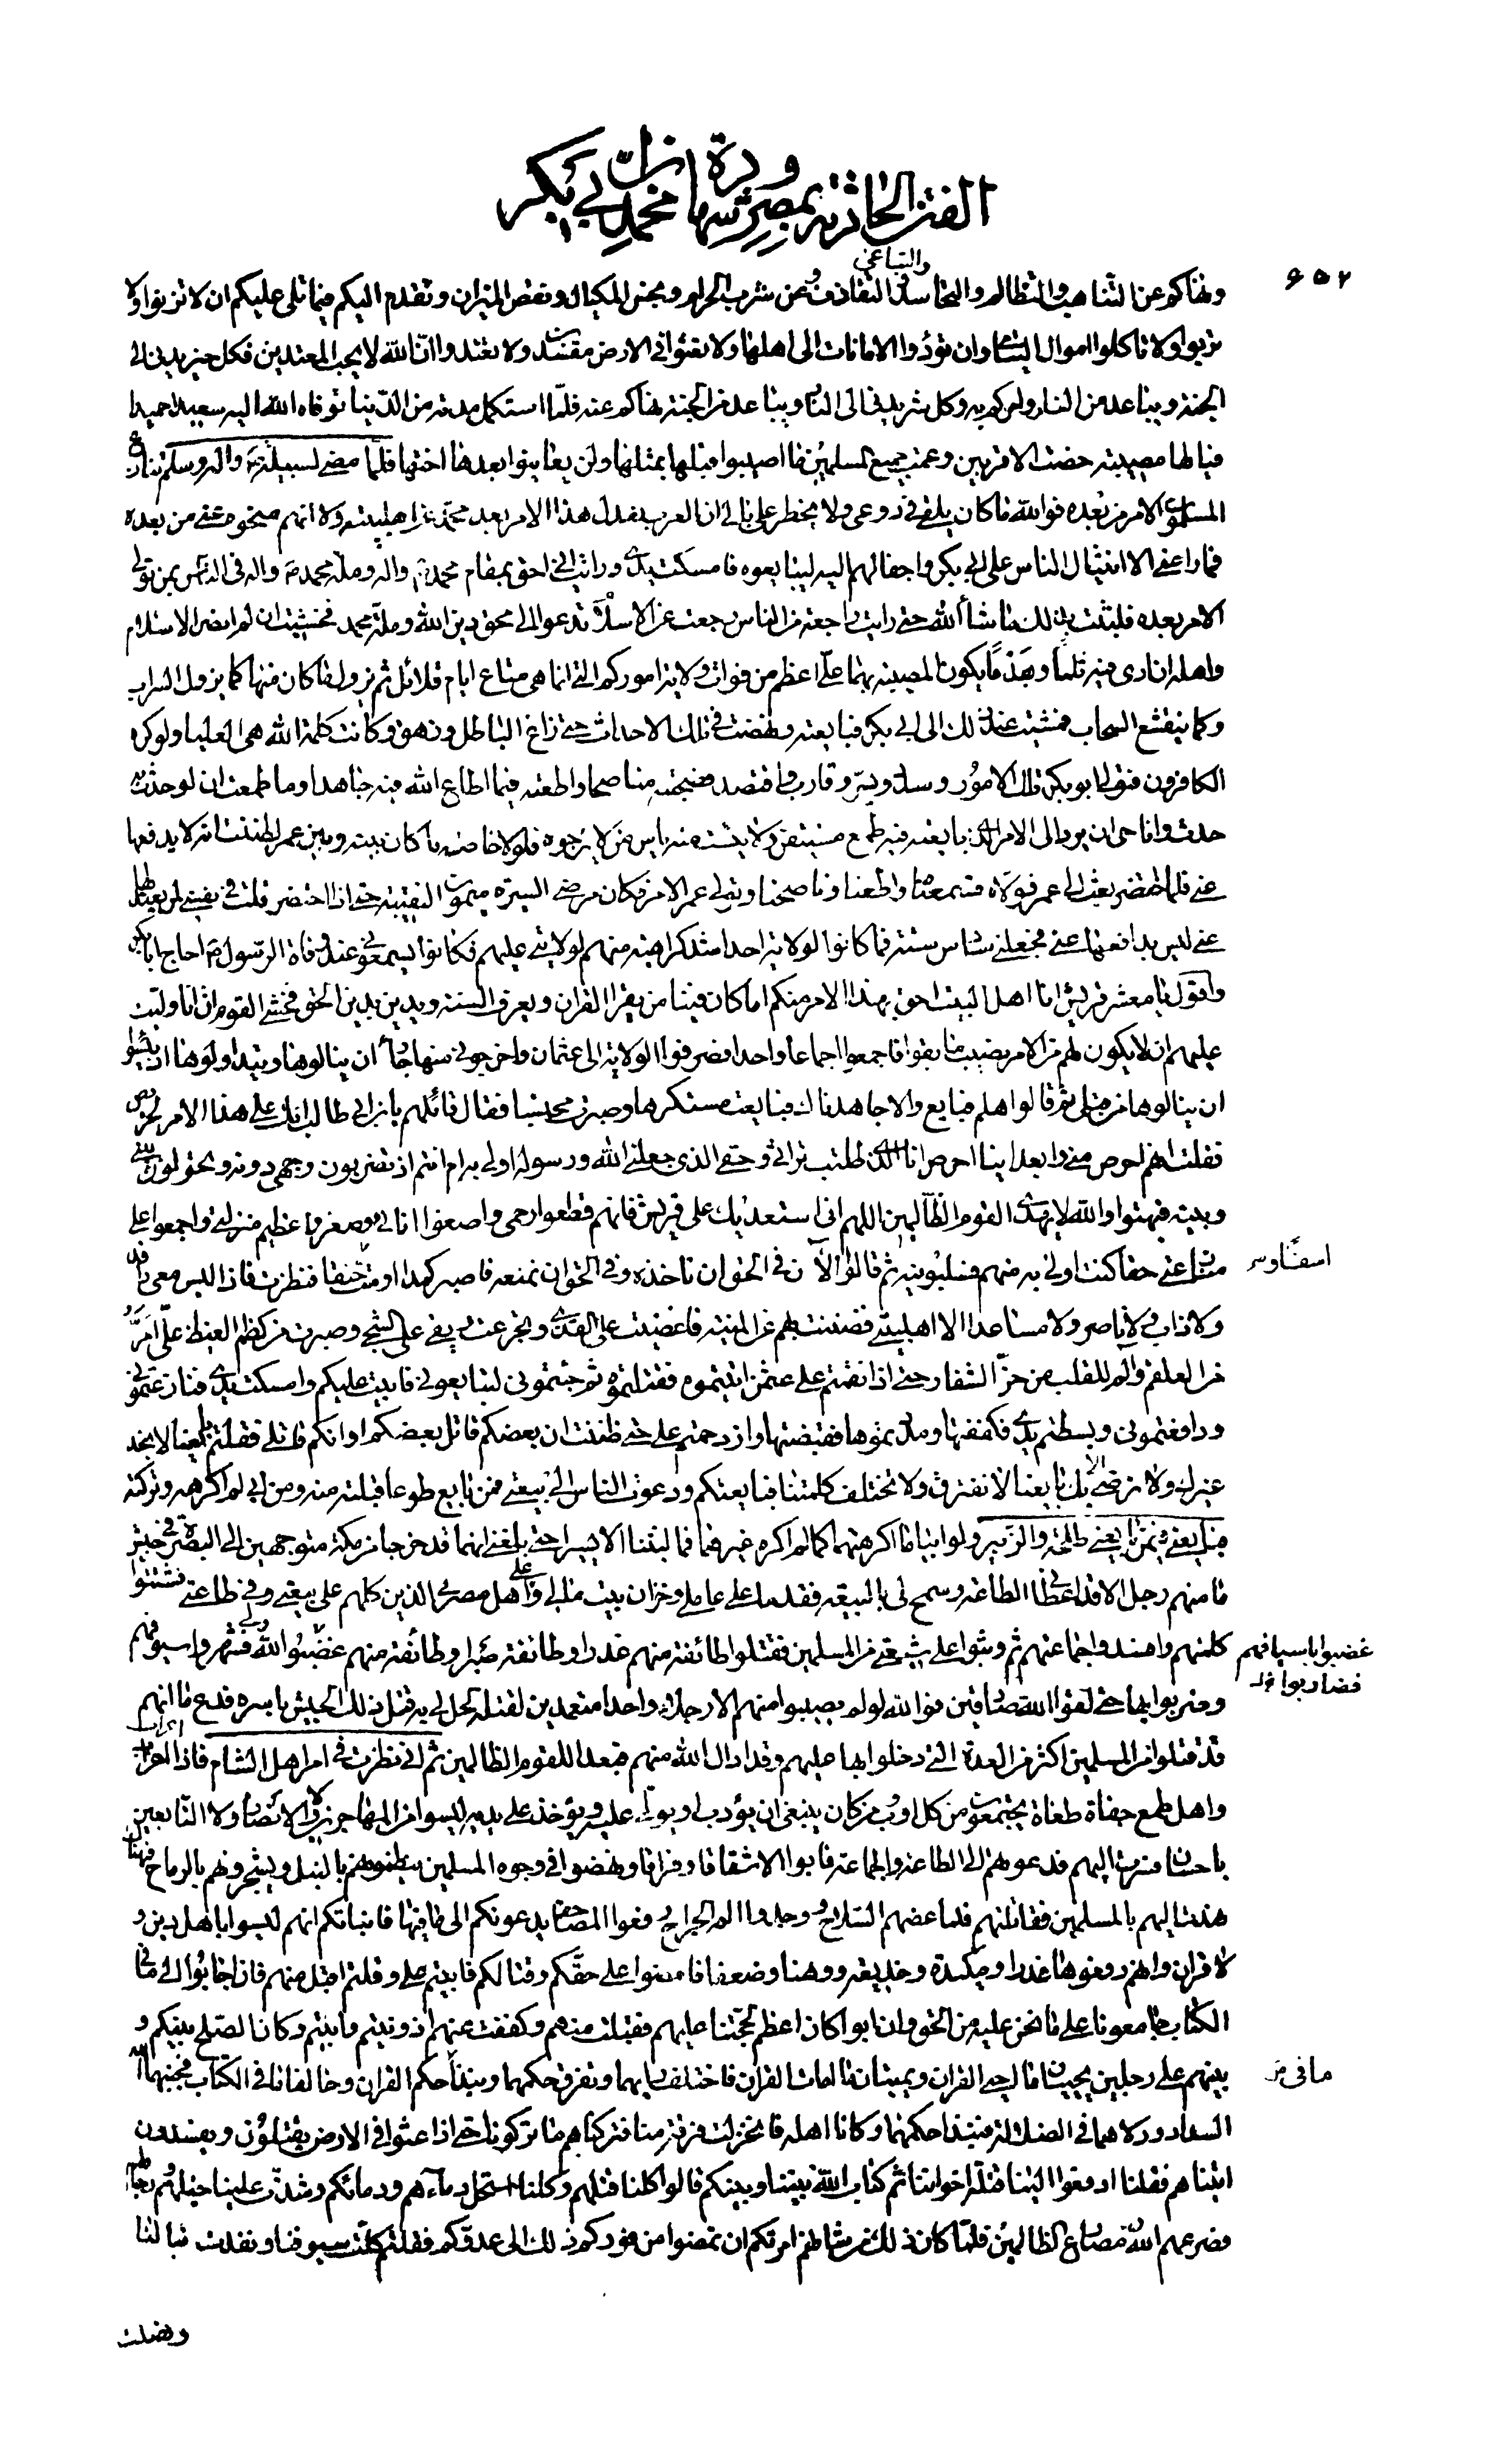 الفتن الحادثة بمصر وشهادة محمد بن ابي بكر
۶۵۲
ونهاكم عن التناهب والتظالم والتحاسد والتباغي والتقاذف وعن شرب الحرام وبخس المكيال ونقص الميزان وتقدم اليكم فيما تلى عليكم ان لا تزنوا ولا
تربوا ولا تاكلوا اموال اليتامى وان تؤدوا الامانات الى اهلها ولا تعثوا في الارض مفسدين ولا تعتدوا ان الله لا يحب المعتدين فكل خير يدني الى
الجنة ويباعد من النار امركم به وكل شر يدني الى النار ويباعد من الجنة نهاكم عنه فلما استكمل مدته من الدنيا توفاه الله اليه سعيدا حميدا
فيا لها مصيبة خصت الاقربين وعمت جميع المسلمين ما اصيبوا قبلها بمثلها ولن يعاينوا بعدها اختها فلما مضى لسبيله ص واله وسلم تنازع
المسلمون الامر من بعده فوالله ما كان يلقى في روعي ولا يخطر على بالي ان العرب تعدل هذا الامر بعد محمد عن اهل بيته ولا انهم منحوه عني من بعده
فما راعني الا انثيال الناس على ابي بكر واجفالهم اليه ليبايعوه فامسكت يدي ورايت اني احق بمقام محمد ص واله وملة محمد ص واله في الناس بمن تولى
الامر بعده فلبثت بذلك ما شاء الله حتى رايت راجعة من الناس رجعت عن الاسلام تدعو الى محق دين الله وملة محمد فخشيت ان لم انصر الاسلام
واهله ان ارى فيه ثلما وهدما يكون المصيبة بهما علي اعظم من فوات ولاية اموركم التي انما هي متاع ايام قلائل ثم يزول ما كان منها كما يزول السراب
وكما ينقشع السحاب فمشيت عند ذلك الى ابي بكر فبايعته ونهضت في تلك الاحداث حتى زاغ الباطل وزهق وكانت كلمة الله هي العليا ولو كره
الكافرون فتولى ابو بكر تلك الامور وسدد ويسر وقارب واقتصد فصحبته مناصحا واطعته فيما اطاع الله فيه جاهدا وما طمعت ان لو حدث به
حدث وانا حي ان يرد الي الامر الذي بايعته فيه طمع مستيقن ولا يئست منه ياس من لا يرجوه فلولا خاصة ما كان بينه وبين عمر لظننت انه لا يدفعها
عني فلما احتضر بعث الى عمر فولاه فسمعنا واطعنا وناصحنا وتولى عمر الامر فكان مرضي السيرة ميمون النقيبة حتى اذا احتضر قلت في نفسي لن يعدلها
عني ليس بدافعها عني فجعلني سادس ستة فما كانوا لولاية احد اشد كراهية منهم لولايتي عليهم فكانوا يسمعوني عند وفاة الرسول ص احاج ابا بكر
واقول يا معشر قريش انا اهل البيت احق بهذا الامر منكم اما كان فينا من يقرا القران ويعرف السنة ويدين بدين الحق فخشي القوم ان انا وليت
عليهم ان لا يكون لهم من الامر نصيب ما بقوا فاجمعوا اجماعا واحدا فصرفوا الولاية الى عثمان واخرجوني منها رجاء ان ينالوها ويتداولوها اذ يئسوا
ان ينالوها من قبلي ثم قالوا هلم فبايع والا جاهدناك فبايعت مستكرها وصبرت محتسبا فقال قائلهم يا بن ابي طالب انك على هذا الامر لحريص
فقلت انتم احرص مني وابعد اينا احرص انا الذي طلبت تراثي وحقي الذي جعلني الله ورسوله اولى به ام انتم اذ تضربون وجهي دونه وتحولون بيني
وبينه فبهتوا والله لا يهدي القوم الظالمين اللهم اني استعديك على قريش فانهم قطعوا رحمي واصغوا انائي وصغروا عظيم منزلتي واجمعوا على
منازعتي حقا كنت اولى به منهم فسلبونيه ثم قالوا الا ان في الحق ان تاخذه وفي الحق ان تمنعه فاصبر كمدا او مت حنقا فنظرت فاذا ليس معي رافد
اسفا وس
ولا ذاب ولا ناصر ولا مساعد الا اهل بيتي فضننت بهم عن المنية فاغضيت على القذى وتجرعت ريقي على الشجى وصبرت من كظم الغيظ على امر
من العلقم والم للقلب من حز الشفار حتى اذا نقمتم على عثمن اتيتموه فقتلتموه ثم جئتموني لتبايعوني فابيت عليكم وامسكت يدي فنازعتموني
ودافعتموني وبسطتم يدي فكففتها ومددتموها فقبضتها وازدحمتم علي حتى ظننت ان بعضكم قاتل بعضكم او انكم قاتلي فقلتم بايعنا لا نجد
غيرك ولا نرضى الا بك بايعنا لا نفترق ولا تختلف كلمتنا فبايعتكم ودعوت الناس الى بيعتي فمن بايع طوعا قبلته منه ومن ابى لم اكرهه وتركته
فبايعني فيمن بايعني طلحة والزبير ولو ابيا ما اكرهتهما كما لم اكره غيرهما فما لبثنا الا يسيرا حتى بلغني انهما قد خرجا من مكة متوجهين الى البصرة في جيش
ما منهم رجل الا قد اعطاني الطاعة وسمح لي بالبيعة فقدما على عاملي وخزان بيت مالي وعلى اهل مصري الذين كلهم على بيعتي وفي طاعتي فشتتوا
كلمتهم وافسدوا جماعتهم ثم وثبوا على شيعتي من المسلمين فقتلوا طائفة منهم غدرا وطائفة صبرا وطائفة منهم غضبوا لله فشهروا سيوفهم
غضبوا باسيافهم
فضاربوا خ‍ل
وضربوا بها حتى لقوا الله صادقين فوالله لو لم يصيبوا منهم الا رجلا واحدا متعمدين لقتله لحل لي به قتل ذلك الجيش باسره فدع ما انهم
قد قتلوا من المسلمين اكثر من العدة التي دخلوا بها عليهم وقد ادال الله منهم فبعدا للقوم الظالمين ثم اني نظرت في امر اهل الشام فاذا اعراب
واهل طمع جفاة طغاة يجتمعون من كل اوب من كان ينبغي ان يؤدب او يولى عليه ويؤخذ على يديه ليسوا من المهاجرين ولا الانصار ولا التابعين
باحسان فسرت اليهم فدعوتهم الى الطاعة والجماعة فابوا الا شقاقا وفراقا ونهضوا في وجوه المسلمين ينظمونهم بالنبل ويشجرونهم بالرماح فهناك
نهدت اليهم بالمسلمين فقاتلتهم فلما عضهم السلاح ووجدوا الم الجراح رفعوا المصاحف يدعونكم الى ما فيها فانباتكم انهم ليسوا باهل دين و
لا قران وانهم رفعوها غدرا ومكيدة وخديعة ووهنا وضعفا فامضوا على حقكم وقتالكم فابيتم علي وقلتم اقبل منهم فان اجابوا الى ما في
الكتاب جامعونا على ما نحن عليه من الحق وان ابوا كان اعظم لحجتنا عليهم فقبلت منهم وكففت عنهم اذ ونيتم وابيتم وكان الصلح بينكم و
بينهم على رجلين يحييان ما احيى القران ويميتان ما امات القران فاختلف رايهما وتفرق حكمهما ونبذا حكم القران وخالفا ما في الكتاب فجنبهما الله
ما في س
السداد ودلاهما في الضلالة فنبذا حكمهما وكانا اهله فانخزلت فرقة منا فتركناهم ما تركونا حتى اذا عثوا في الارض يقتلون ويفسدون
اتيناهم فقلنا ادفعوا الينا قتلة اخواننا ثم كتاب الله بيننا وبينكم قالوا كلنا قتلهم وكلنا استحل دماءهم ودمائكم وشدت علينا خيلهم ورجالهم
فصرعهم الله مصارع الظالمين فلما كان ذلك من شانهم امرتكم ان تمضوا من فوركم ذلك الى عدوكم فقلتم كلت سيوفنا ونفدت نبالنا
ونصلت